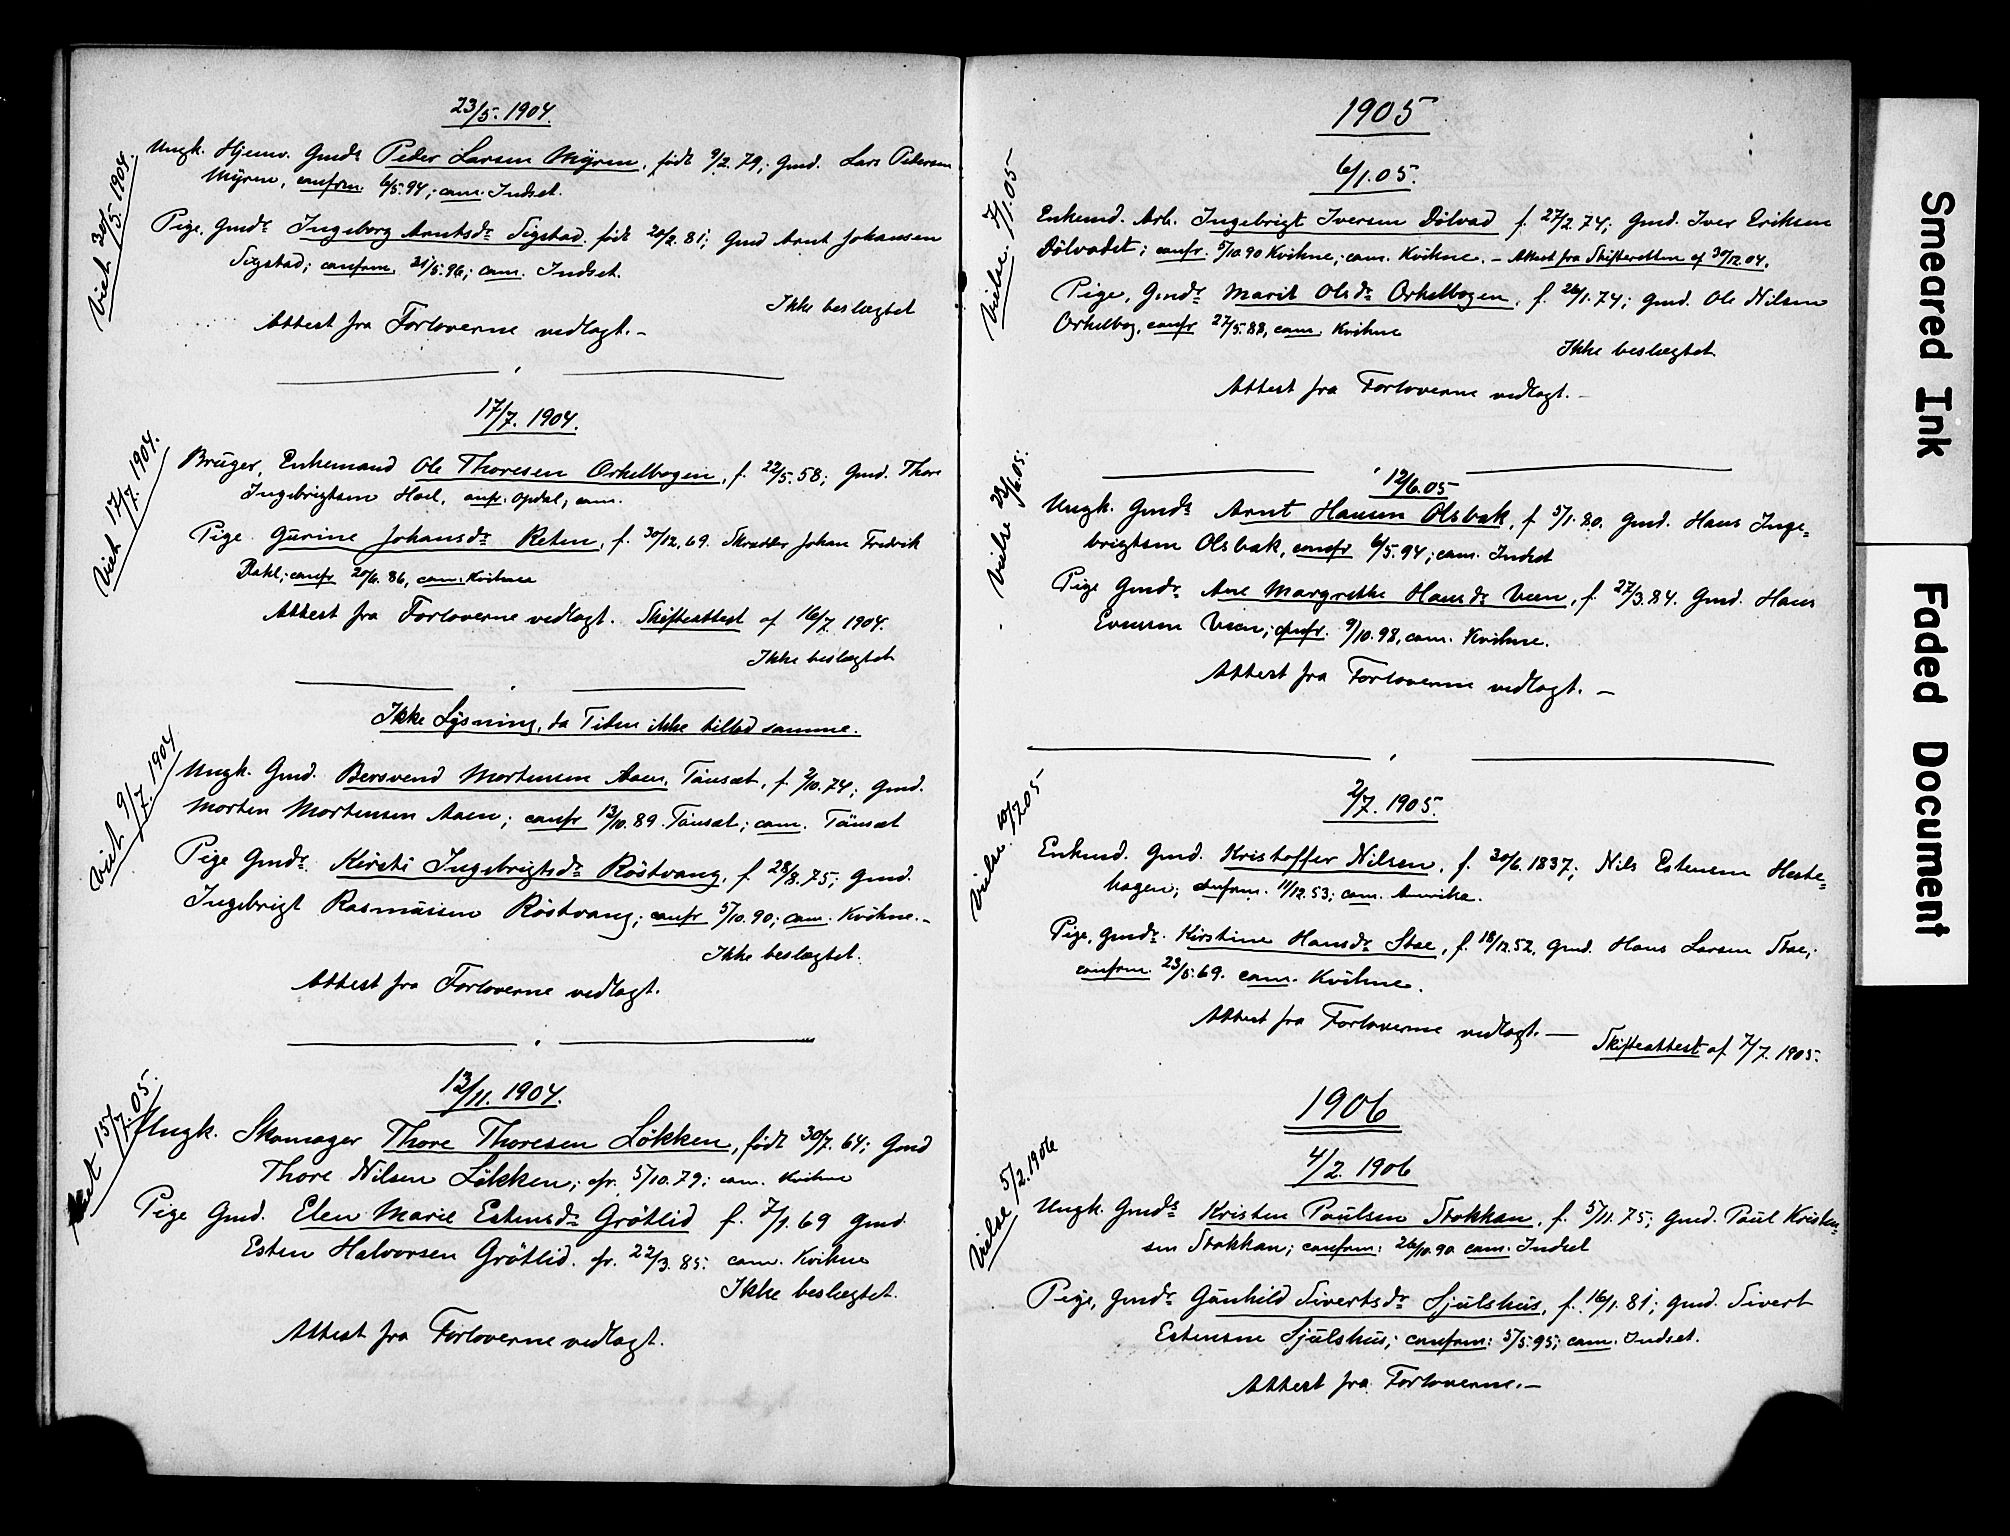 23/5. 1904.
Viet 30/5. 1904.
Ungk. Hjemv. Gmds Peder Larsen Myren, født 9/2. 79; Gmd. Lars Pedersen
Myren, confrm. 6/5. 94; cam. Indset.
Pige, Gmdr. Ingeborg Arntsdr. Sigstad, født 20/2. 81; Gmd Arnt Johansen
Sigstad; confrm. 31/5. 96; cam. Indset.
Ikke beslægtet
Attest fra Forloverne vedlagt. –
17/7. 1904.
Viet 17/7. 1904.
Bruger, Enkemand Ole Thoresen Orkelbogen, f. 22/5. 58; Gmd. Thore
Ingebrigtsen Hoel, confr. Opdal, cam.
Pige Gurine Johansdr. Reten, f. 30/12. 69. Skrædder Johan Fredrik
Dahl; confr 20/6. 86, cam. Kvikne
Attest fra Forloverne vedlagt. Skifteattest af 16/7. 1904.
Ikke beslægtet
Ikke Lysning, da Tiden ikke tillod samme.
Viet 9/7. 1904
Ungk. Gmd. Bersvend Mortensen Aaen, Tönset, f. 2/10. 74; Gmd.
Morten Mortensen Aaen; confr 13/10. 89 Tönset; cam. Tönset
Pige Gmdr. Kirsti Ingebrigtsdr. Röstvang, f 28/8. 75; Gmd.
Ingebrigt Rasmussen Röstvang; confr 5/10. 90; cam. Kvikne. –
Ikke beslægtet.
Attest fra Forloverne vedlagt.
13/11. 1904.
Viet 15/7. 05.
Ungk. Skomager Thore Thoresen Lökken, født 30/7. 64; Gmd
Thore Nilsen Lökken; cfr. 5/10. 79; cam. Kvikne
Pige Gmd. Elen Marie Estensdr. Grötlid f. 7/1. 69 Gmd.
Esten Halvorsen Grötlid. cfr. 22/3. 85. cam. Kvikne
Ikke beslægtet.
Attest fra Forloverne vedlagt.
1905
6/1. 05.
Vielse. 7/1. 05
Enkemd. Arb. Ingebrigt Iversen Dölvad f. 27/2. 74; Gmd. Iver Eriksen
Dölvadet; confr. 5/10. 90 Kvikne; cam. Kvikne. – Attest fra Skifteretten af 30/12. 04.
Pige, Gmdr. Marit Olsdr. Orkelbogen, f. 26/1. 74; Gmd. Ole Nilsen
Orkelbog, confr 27/5. 88, cam. Kvikne
Ikke beslægtet
Attest fra Forloverne vedlagt. –
12/6. 05
Vielse 23/6. 05.
Ungk. Gmds Arnt Hansen Olsbak, f 5/1. 80. Gmd. Hans Inge-
brigtsen Olsbak, confr 6/5. 94; cam. Indset
Pige Gmdr. Ane Margrethe Hansdr. Veen, f. 27/3. 84. Gmd. Hans
Evensen Veen; confr. 9/10. 98, cam. Kvikne.
Attest fra Forloverne vedlagt. –
2/7. 1905.
Vielse. 10/7. 05
Enkmd. Gmd. Kristoffer Nilsen, f. 30/6. 1837; Nils Estensen Heste-
hagen; confrm. 11/12. 53; cam. Amerika.
Pige, Gmdr. Kirstine Hansdr. Stæ, f. 18/12. 52, Gmd. Hans Larsen Stæ;
confrm. 23/5. 69. cam. Kvikne.
Attest fra Forloverne vedlagt. –
Skifteattest af 7/7. 1905.
1906
4/2. 1906
Vielse 5/2. 1906
Ungk. Gmds Kristen Paulsen Stokkan, f. 5/11. 75; Gmd. Paul Kristen-
sen Stokkan; confrm: 26/10. 90 cam. Indset
Pige, Gmdr. Gunhild Sivertsdr. Sjulshus, f. 16/1. 81; Gmd. Sivert
Estensen Sjulshus; confrm: 5/5. 95; cam. Indset.
Attest fra Forloverne. –
Smeared Ink
Faded Document